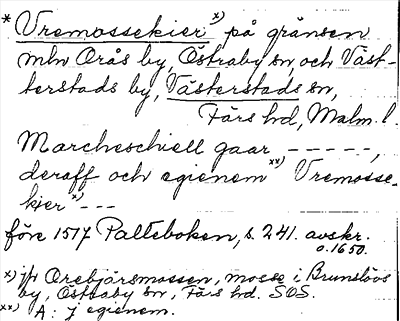 * Vremossekier x) på gränsen
mln Orås by, Östraby sn, och Väst-
terstads by, Västerstads sn,
Färs hd, Malm. l.
Marcheschiell gaar - - - - -,
deraff och egienem xx) Vremosse-
kier x) - - -
före 1517 Palteboken, s. 241. avskr.
o. 1650.
x) jfr Orebjärsmossen, mosse i Brunslövs
by, Östraby sn, Färs hd. SOS.
xx) A: j egienem.